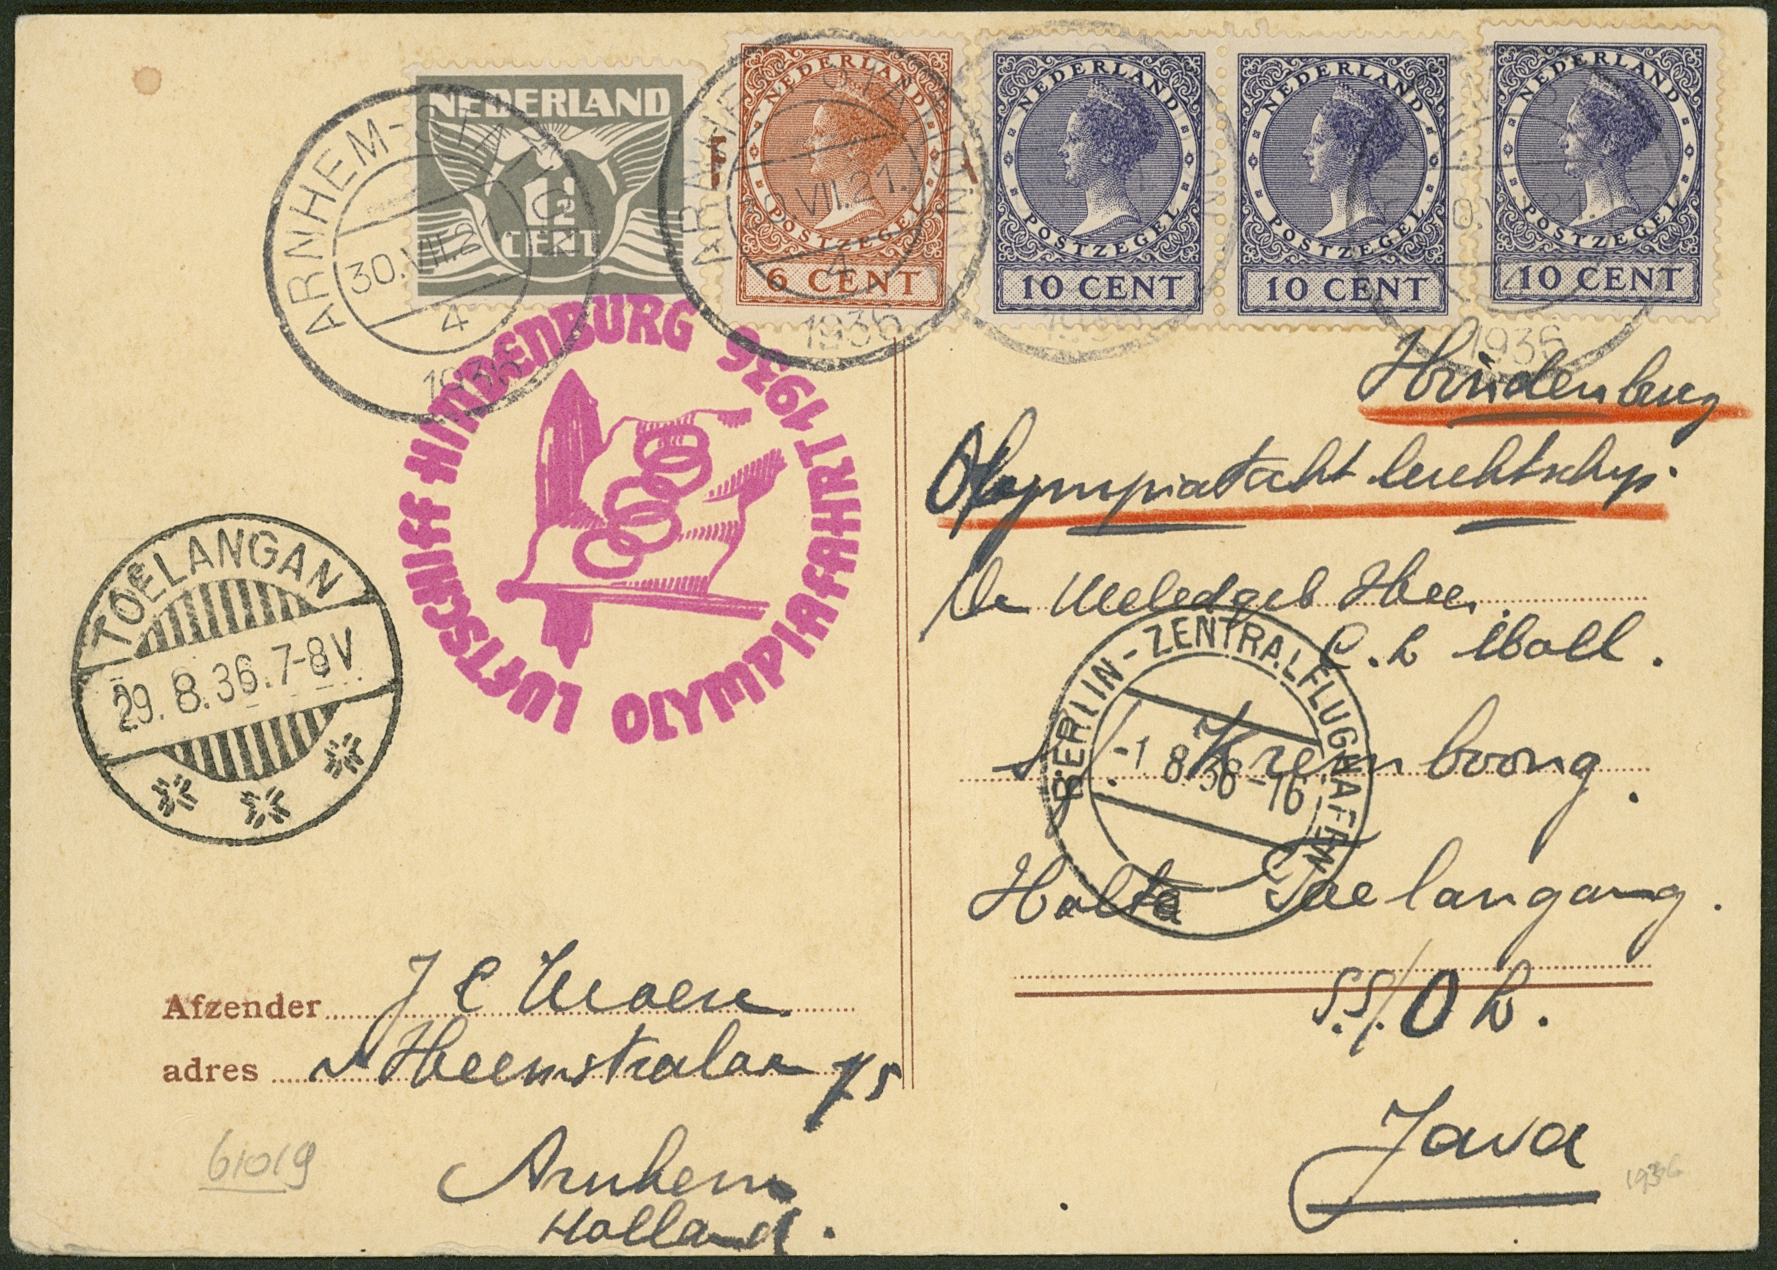 NEDERLAND
1½
CENT
NEDERLAND
POSTZEGEL
6 CENT
NEDERLAND
POSTZEGEL
10 CENT
NEDERLAND
POSTZEGEL
10 CENT
NEDERLAND
POSTZEGEL
10 CENT
ARNHEM-STATION
30.VII.21
4
1936
VII.21.
4
1936
1936
LUFTSCHIFF HINDENBURG 1936
OLYMPIAFAHRT
Hindenburg
Olympiatocht luchtschip.
De Weledgeb Heer
C. L Moll.
s/f Kremboong.
Halte Toelangang.
S.S/. O L.
Java
BERLIN-ZENTRALFLUGHAFEN
-1.8.36-16
TOELANGAN
29.8.36.7-8V
Afzender J C Moere
adres v Heemstralaan 75
Arnhem
Holland.
61019
1936